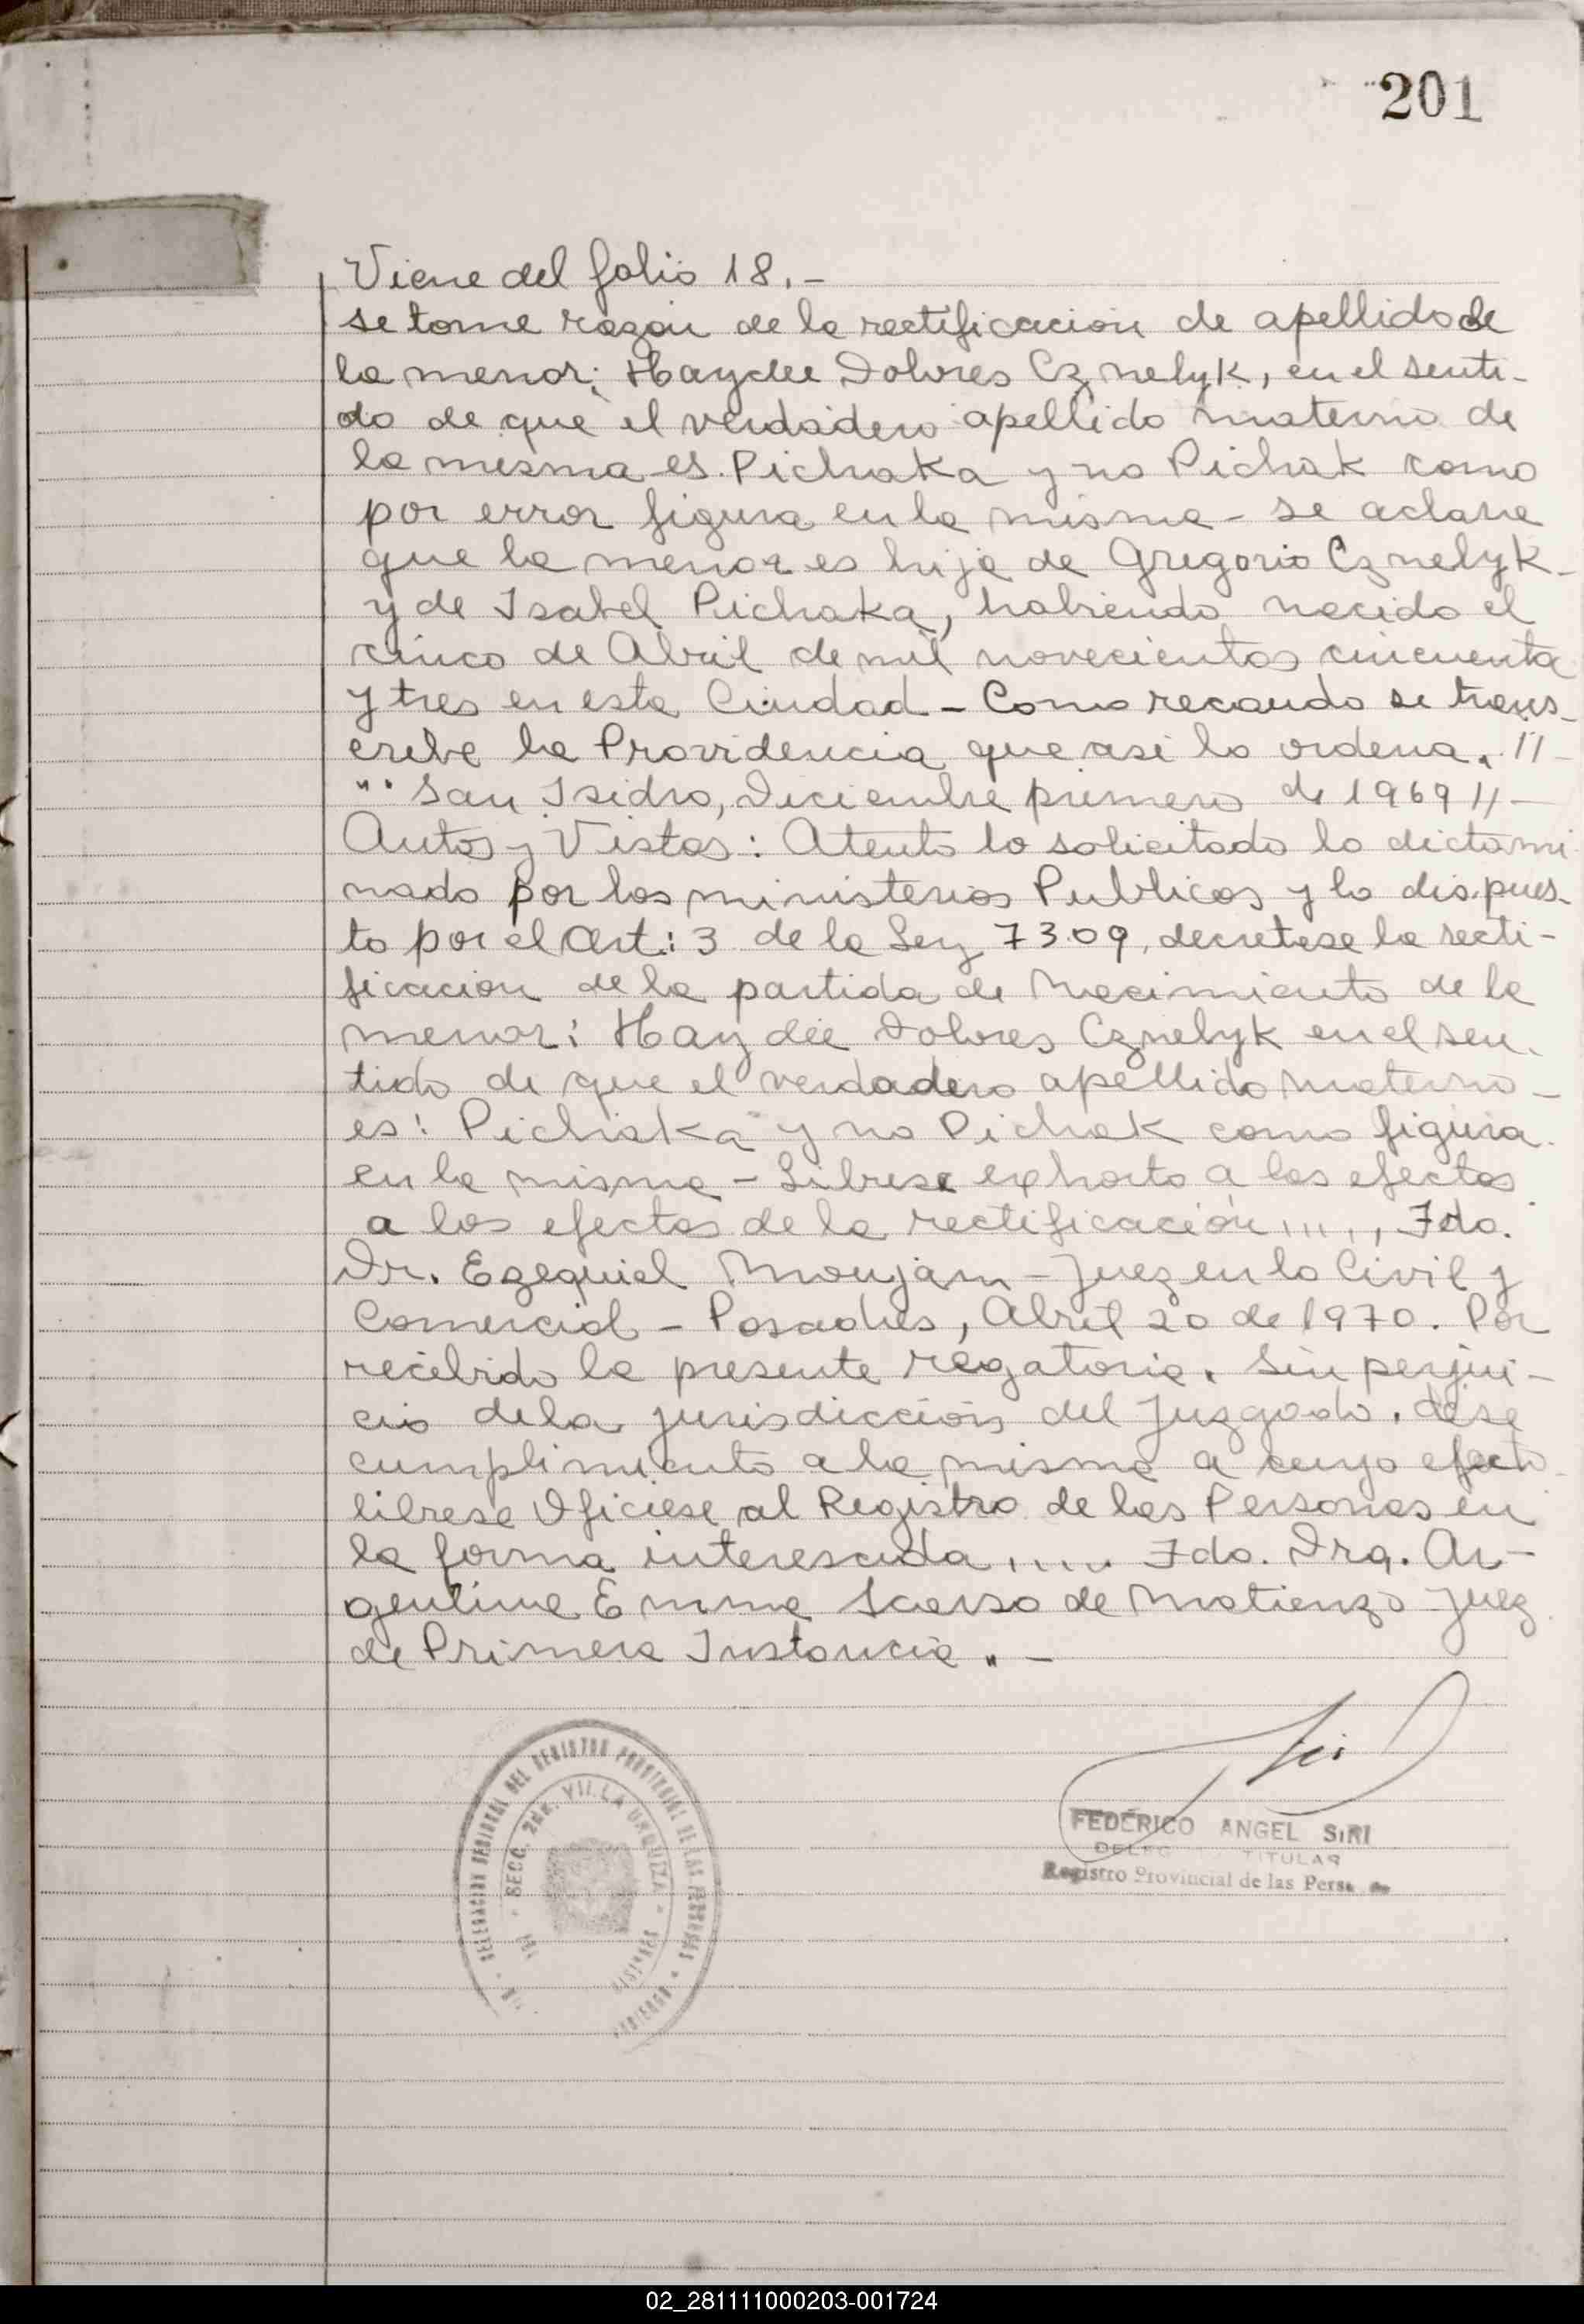 201
Viene del folio 18.-
se tome razon de la rectificacion de apellido de
la menor: Haydee Dolores Cznelyk, en el senti-
do de que el verdadero apellido materno de
la misma es Pichaka y no Pichak como
por error figura en la misma - se aclara
que la menor es hija de Gregorio Cznelyk-
y de Isabel Pichaka, habiendo nacido el
cinco de Abril de mil novecientos cincuenta
y tres en esta Ciudad - Como recaudo se trans-
cribe la Providencia que asi lo ordena. "-
"" San Isidro, Diciembre primero de 1969 "-
Autos y Vistos: Atento lo solicitado lo dictami
nado por los ministerios Publicos y lo dispues-
to por el Art: 3 de la Ley 7309, decretase la recti-
ficacion de la partida de Nacimiento de la
menor: Haydée Dolores Cznelyk en el sen-
tido de que el verdadero apellido materno -
es: Pichaka y no Pichak como figura
en la misma - Librese exhorto a los efectos
a los efectos de la rectificación....., Fdo.
Dr. Ezequiel Monjam - Juez en lo Civil y
Comercial - Posadas, Abril 20 de 1970. Por
recibido la presente rogatoria. Sin perjui-
cio de la jurisdiccion del Juzgado, dese
cumplimiento a la misma a cuyo efecto
librese Oficiese al Registro de las Personas en
la forma interesada..... Fdo. Dra. Ar-
gentina Emma Scarso de Matienzo Juez
de Primera Instancia. " -
DELEGACION REGIONAL DEL REGISTRO PROVINCIAL DE LAS PERSONAS
SECC. 2da. VILLA URQUIZA
POSADAS
MISIONES
FEDERICO ANGEL SIRI
DELEG TITULAR
Registro Provincial de las Pers
02_281111000203-001724